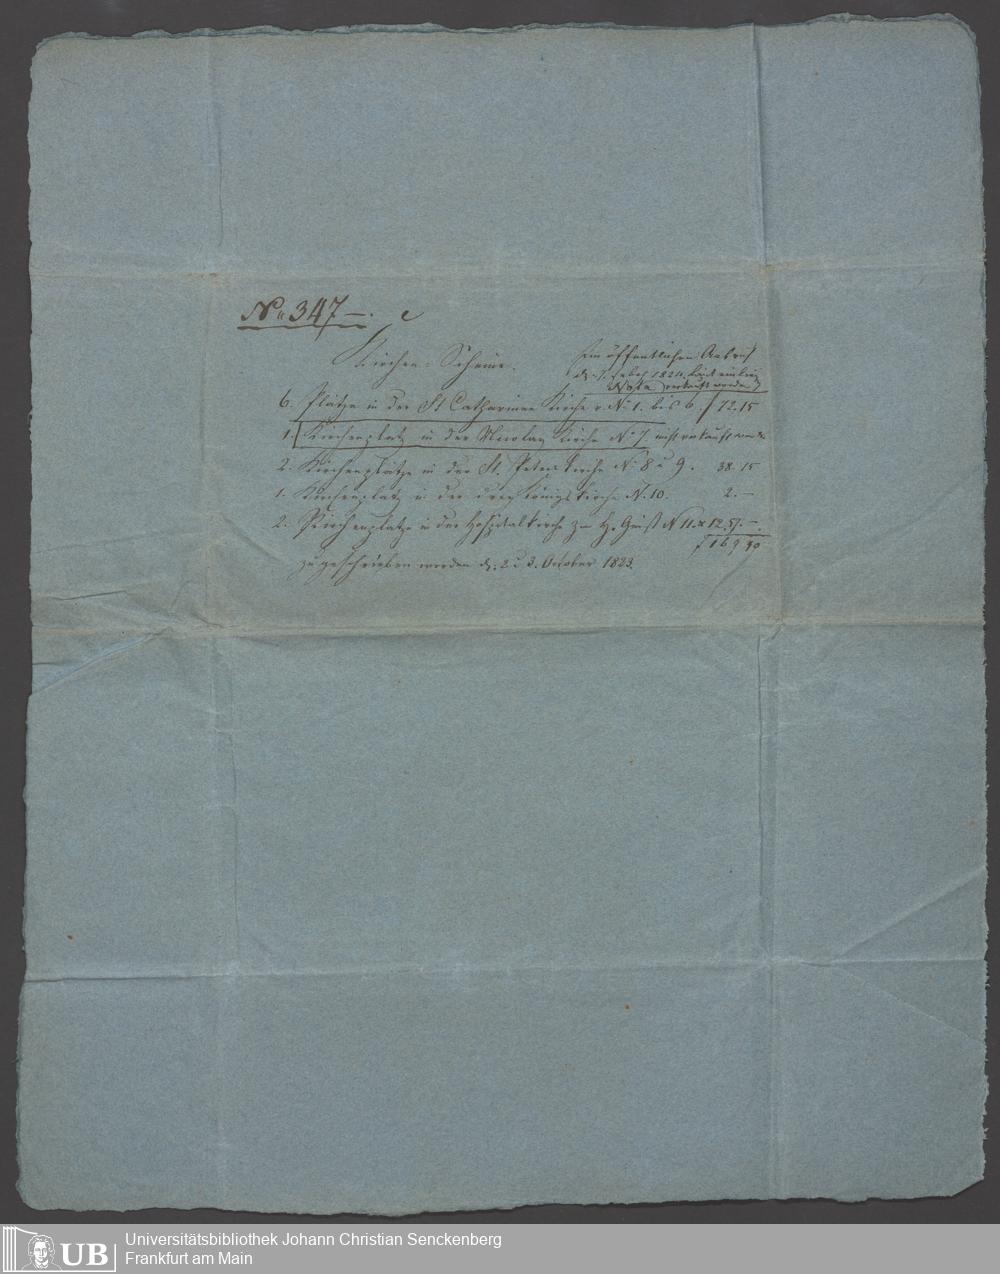 No. 347 —. c
Kirchen-Scheine.
Im öffentlichen
d. 7. 1824. laut
Nota verkauft worden
6. Plätze in der St Catharinen Kirche v. No 1. bis 6. f 72.15
1. Kirchenplatz in der Nicolay Kirche No 7. nicht verkauft
2. Kirchenplätze in der St. Peters Kirche No 8 u 9. 38.15
1. Kirchenplatz in der drey Königs Kirche N. 10. 2.—
2. Kirchenplätze in der Hospitalkirche z. H. Geist N 11. & 12. 57.—.
f 169 30
zugeschrieben worden d. 2 u 3. October 1823.
UB
Universitätsbibliothek Johann Christian Senckenberg
Frankfurt am Main